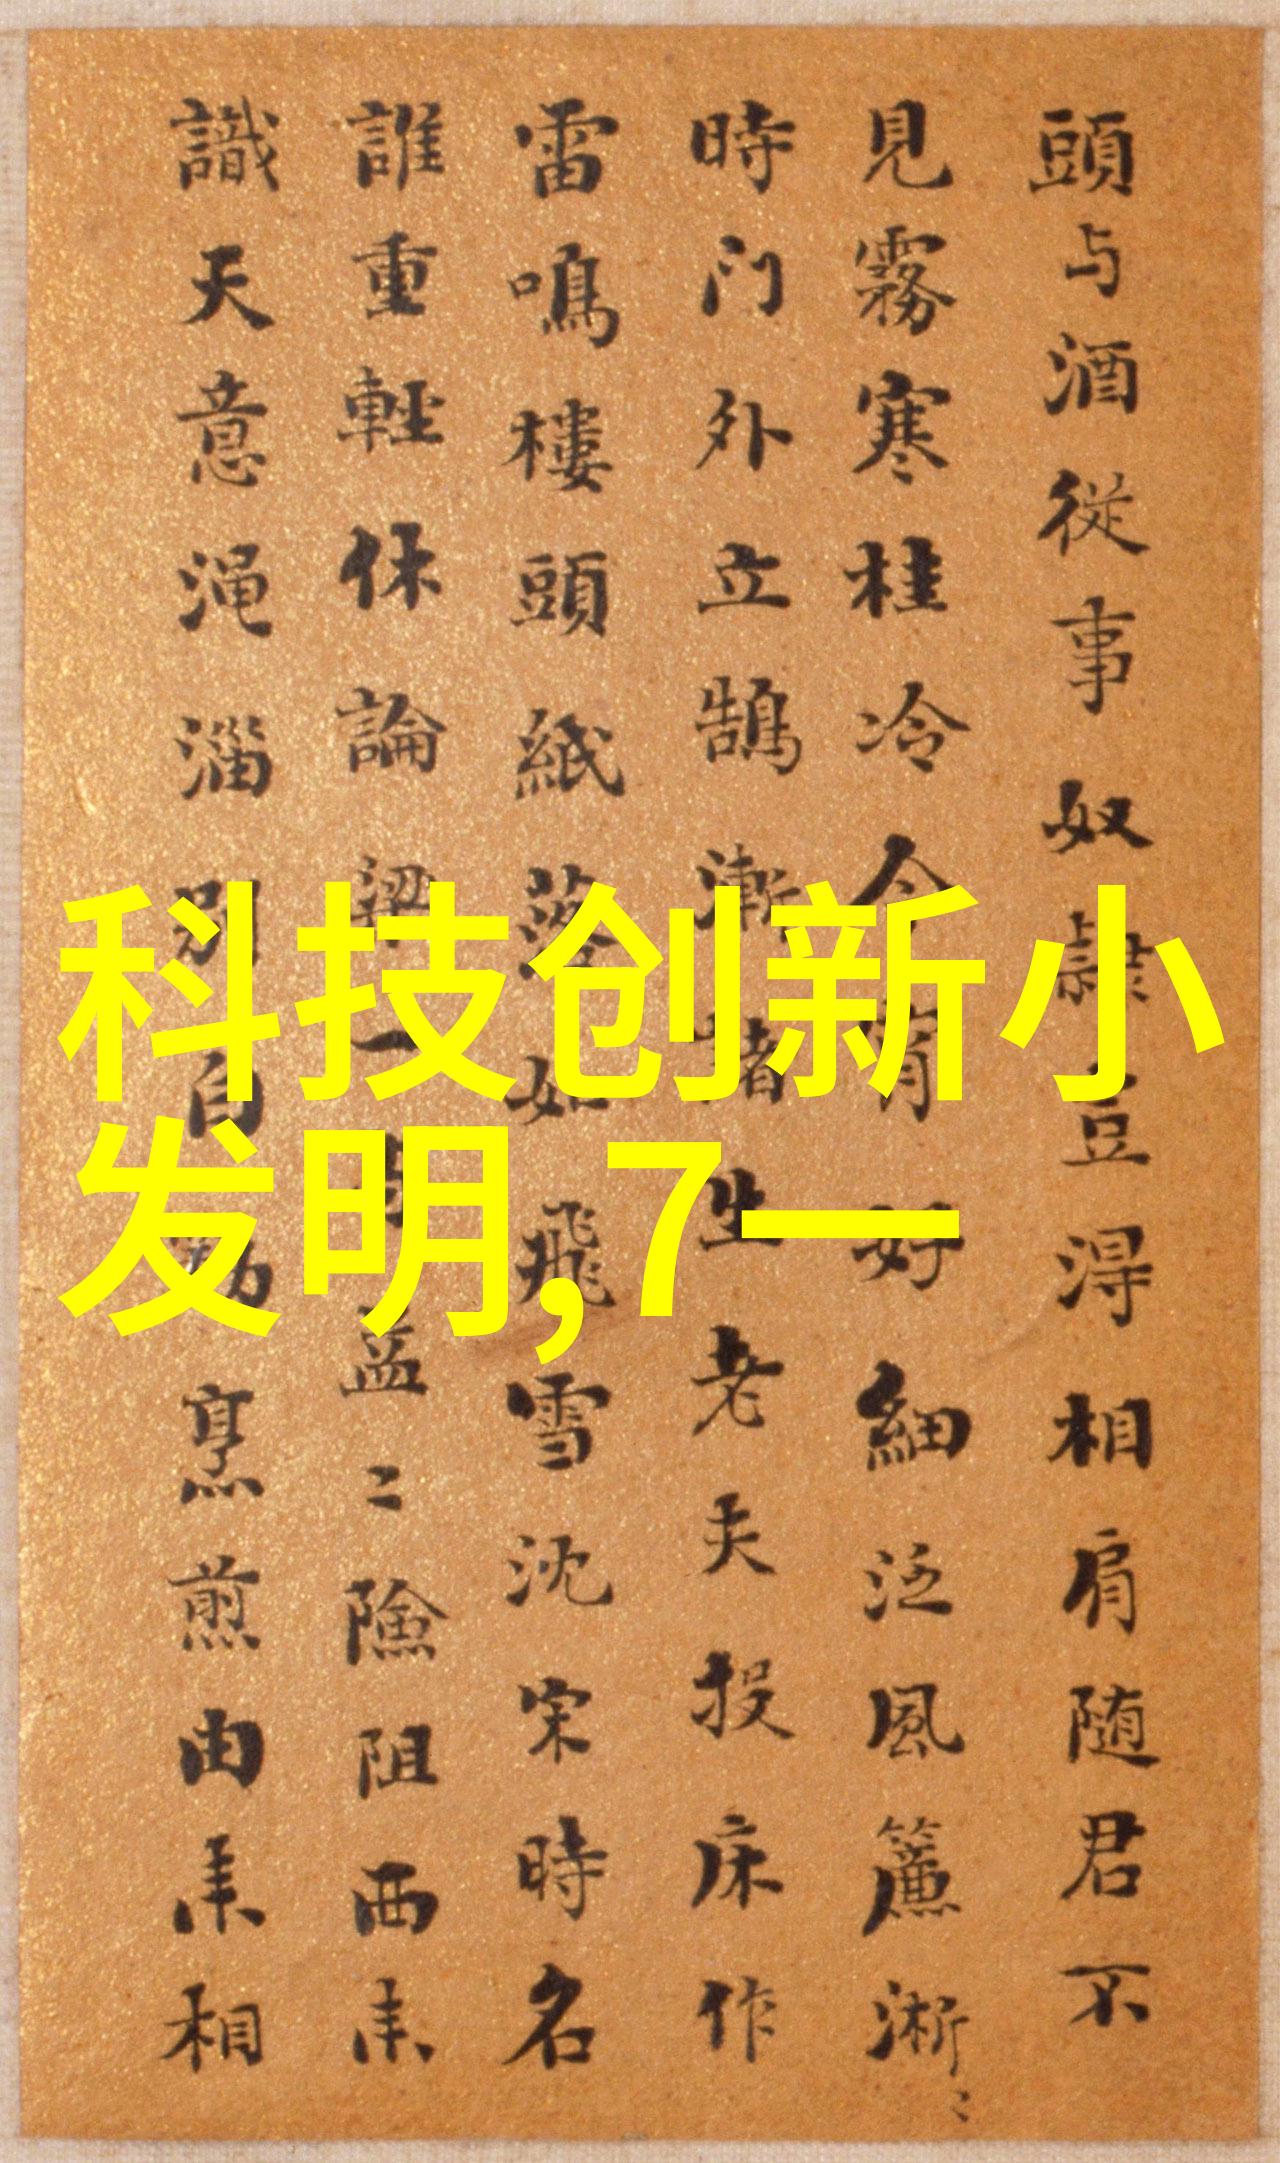 頭与酒從事奴隸豆淂相肩随君不
見霧寒桂冷今有好細泛風簾淅〻
時门外立鵠漸諸生老夫投床作
雷鳴樓頭紙落如飛雪沈宋時名
誰重輕休論梁一益〻險阻西来
識天意渑淄别自烹煎由来相
科技创新小
发明,7一